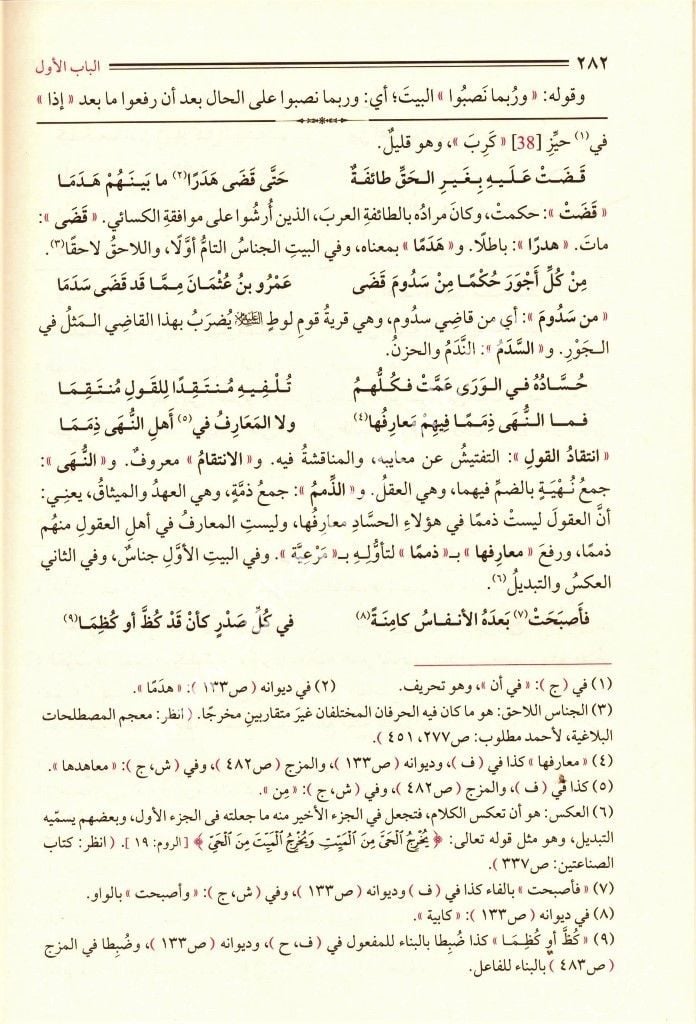 ٢٨٢ الباب الأول
وقوله: « ورُبما نَصبُوا » البيتَ؛ أي: وربما نصبوا على الحال بعد أن رفعوا ما بعد « إذا »
في(١) حيِّزِ [38] « كَرِبَ »، وهو قليلٌ.
قَضَتْ عَلَيهِ بِغَيرِ الحَقِّ طائفَةٌ حَتَّى قَضَى هَدَرًا(٢) ما بَينَهُمْ هَدَمَا
« قَضَتْ »: حكمتْ، وكانَ مرادُه بالطائفةِ العربَ، الذين أُرشُوا على موافقةِ الكسائي. « قَضَى »:
ماتَ. « هدرًا »: باطلًا. و« هَدَمًا » بمعناه، وفي البيتِ الجناسُ التامُّ أوَّلًا، واللاحقُ لاحقًا(٣).
مِنْ كُلِّ أَجْوَرَ حُكْمًا مِنْ سَدُومَ قَضَى عَمْرُو بنُ عُثْمَانَ مِمَّا قَد قَضَى سَدَمَا
« من سَدُومَ »: أي من قاضِي سدُومٍ، وهي قريةُ قومِ لوطٍ عليه السلام يُضرَبُ بهذا القاضِي المَثلُ في
الجَوْرِ. و« السَّدَمُ »: النَّدَمُ والحزنُ.
حُسَّادُهُ في الوَرَى عَمَّتْ فكُلُّهمُ تُلْفِيهِ مُنتَقِدًا للقَولِ مُنتَقِمَا
فما النُّهَى ذِمَمًا فِيهِمْ مَعارِفُها(٤) ولا المَعَارِفُ في(٥) أَهلِ النُّهَى ذِمَمَا
« انتقادُ القولِ »: التفتيشُ عن معايبِه، والمناقشةُ فيه. و« الانتقامُ » معروفٌ. و« النُّهَى »:
جمعُ نُهْيَةٍ بالضمِّ فيهما، وهي العقلُ. و« الذِّممُ »: جمعُ ذمَّةٍ، وهي العهدُ والميثاقُ، يعنِي:
أنَّ العقولَ ليستْ ذممًا في هؤلاءِ الحسَّادِ معارِفُها، وليستِ المعارفُ في أهلِ العقولِ منهُم
ذممًا، ورفعَ « معارِفها » بـ« ذممًا » لتأوُّلِهِ بـ« مَرْعِيَّة ». وفي البيتِ الأوَّلِ جناسٌ، وفي الثاني
العكسُ والتبديلُ(٦).
فأَصبَحَتْ(٧) بَعدَهُ الأنفاسُ كامِنَةً(٨) في كُلِّ صَدْرٍ كأنْ قَدْ كُظَّ أو كُظِمَا(٩)
(١) في (ج): « في أن »، وهو تحريف. (٢) في ديوانه (ص١٣٣): « هدَمًا ».
(٣) الجناس اللاحق: هو ما كان فيه الحرفان المختلفان غيرَ متقاربينِ مخرجًا. (انظر: معجم المصطلحات
البلاغية، لأحمد مطلوب: ص٢٧٧، ٤٥١).
(٤) « معارفها » كذا في (ف)، وديوانه (ص١٣٣)، والمزج (ص٤٨٢)، وفي (ش، ج): « معاهدها ».
(٥) كذا في (ف)، والمزج (ص٤٨٢)، وفي (ش، ج): « مِن ».
(٦) العكس: هو أن تعكس الكلام، فتجعل في الجزء الأخير منه ما جعلته في الجزء الأول، وبعضهم يسمّيه
التبديل، وهو مثل قوله تعالى: ﴿ يُخْرِجُ ٱلْحَىَّ مِنَ ٱلْمَيِّتِ وَيُخْرِجُ ٱلْمَيِّتَ مِنَ ٱلْحَىِّ ﴾ [الروم: ١٩]. (انظر: كتاب
الصناعتين: ص٣٣٧).
(٧) « فأصبحت » بالفاء كذا في (ف) وديوانه (ص١٣٣)، وفي (ش، ج): « وأصبحت » بالواو.
(٨) في ديوانه (ص١٣٣): « كابية ».
(٩) « كُظَّ أو كُظِمَا » كذا ضُبِطا بالبناء للمفعول في (ف، ح)، وديوانه (ص١٣٣)، وضُبِطا في المزج
(ص٤٨٣) بالبناء للفاعل.